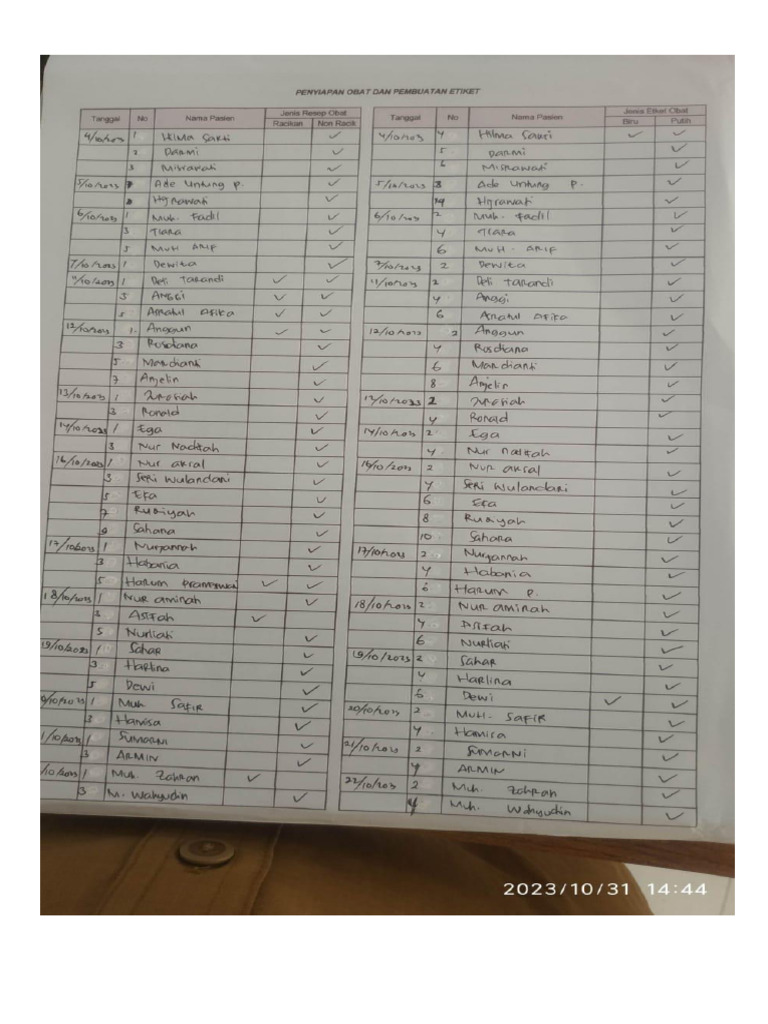 PENYIAPAN OBAT DAN PEMBUATAN ETIKET
Tanggal No Nama Pasien Jenis Resep Obat Racikan Non Racik
4/10/2023 1 Hilma Sakti ✓
2 Darmi ✓
3 Misrawati ✓
5/10/2023 Ade Untung P. ✓
Hjrawati ✓
6/10/2023 1 Muh. Fadil ✓
3 Tiara ✓
5 MUH ARIF ✓
7/10/2023 1 Dewita ✓
/10/2023 1 Deli Takandi ✓ ✓
3 ANGGI ✓ ✓
5 Amatul Afika ✓ ✓
12/10/2023 1. Anggun ✓ ✓
3 Rosdiana ✓
5 Mardianti ✓
7 Anjelin ✓
13/10/2023 1 ✓
3 Ronald ✓
14/10/2023 1 Ega ✓
3 Nur ✓
16/10/2023 1 Nur akral ✓
3 Seri Wulandari ✓
5 Efa ✓
7 Rusiyah ✓
9 Sahara ✓
17/10/2023 1 Nurjannah ✓
3 Habania ✓
5 Harum ✓ ✓
18/10/2023 1 NUR aminah ✓
3 Asifah ✓
5 Nurliati ✓
19/10/2023 1 Sahar ✓
3 Harlina ✓
5 Dewi ✓
0/10/2023 1 Muh SAFIR ✓
3 Hamisa ✓
1/10/2023 1 SUMARNI ✓
3 ARMIN ✓
/10/2023 1 Muh. Zahran ✓
3 M. Wahyudin ✓
Tanggal No Nama Pasien Jenis Etiket Obat Biru Putih
4/10/2023 4 Hilma Sakti ✓ ✓
5 DARMI ✓
6 Misrawati ✓
5/10/2023 8 Ade Untung P. ✓
Hjrawati ✓
6/10/2023 2 Muh. Fadil ✓
4 Tiara ✓
6 MUH. ARIF ✓
7/10/2023 2 Dewita ✓
11/10/2023 2 Deli Takandi ✓
4 Anggi ✓
6 Amatul Afika ✓
12/10/2023 2 Anggun ✓
4 Rosdiana ✓
6 Mardianti ✓
8 Anjelin ✓
13/10/2023 2 ✓
4 Ronald ✓
14/10/2023 2 Ega ✓
4 Nur ✓
16/10/2023 2 Nur akral ✓
4 Seri Wulandari ✓
6 Efa ✓
8 Rusiyah ✓
10 Sahara ✓
17/10/2023 2 Nurjannah ✓
4 Habania ✓
6 Harum P. ✓
18/10/2023 2 Nur aminah ✓
4 Asifah ✓
6 Nurliati ✓
19/10/2023 2 Sahar ✓
4 Harlina ✓
6 Dewi ✓ ✓
20/10/2023 2 Muh. SAFIR ✓
4 Hamisa ✓
21/10/2023 2 SUMARNI ✓
4 ARMIN ✓
22/10/2023 2 Muh. Zahran ✓
4 Muh. Wahyudin ✓
2023/10/31 14:44